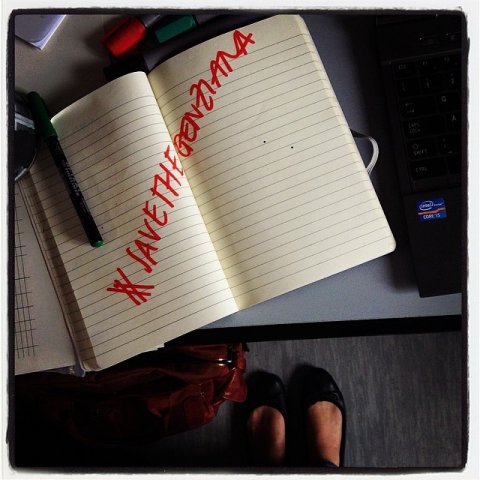 #SAVETHEGENZIANA
intel
CORE i5